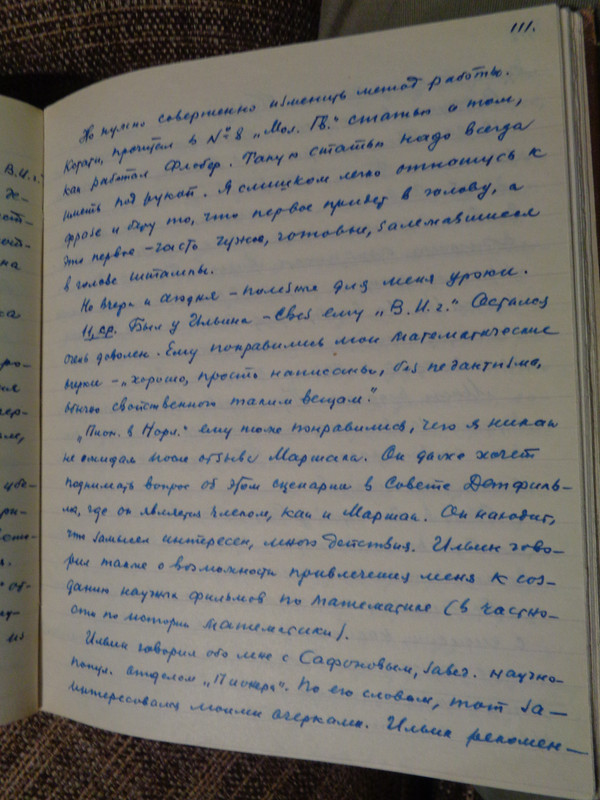 111.
Но нужно совершенно изменить метод работы.
Кстати, прочитал в № 8 „Мол. Гв." статью о том,
как работал Флобер. Такую статью надо всегда
иметь под рукой. Я слишком легко отношусь к
фразе и беру то, что первое придет в голову, а
это первое – часто чужие, готовые, залежавшиеся
в голове штампы.
Но вчера и сегодня – полезные для меня уроки.
11, ср. Был у Ильина – свез ему „В.И.г." Остался
очень доволен. Ему понравились мои математические
очерки – „хорошо, просто написаны, без педантизма,
обычно свойственного таким вещам."
„Пион. в Норл." ему тоже понравились, чего я никак
не ожидал после отзыва Маршака. Он даже хочет
поднимать вопрос об этом сценарии в Совете Детфиль-
ма, где он является членом, как и Маршак. Он находит,
что замысел интересен, много действия. Ильин гово-
рил также о возможности привлечения меня к соз-
данию научных фильмов по математике (в частно-
сти по истории математики).
Ильин говорил обо мне с Сафоновым, завед. научно-
попул. отделом „Пионера". По его словам, тот за-
интересовался моими очерками. Ильин рекомен-
В.И.г."
же-
на